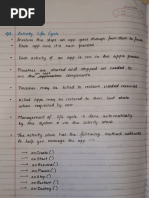 Q1. Activity Life Cycle
→ Involves the steps an app goes through from start to finish.
→ Each app runs it's own process.
→ Each activity of an app is run in the apps process
→ Processes are started and stopped as needed to run an app's components.
→ Processes may be killed to reclaim needed resources
→ Killed apps may be restored to their last state when requested by the user
→ Management of life cycle is done automatically by the system via the activity stack.
→ The activity class has the following method callbacks to help you manage the app:
→ onCreate()
→ onStart()
→ onResume()
→ onPause()
→ onStop()
→ onRestart()